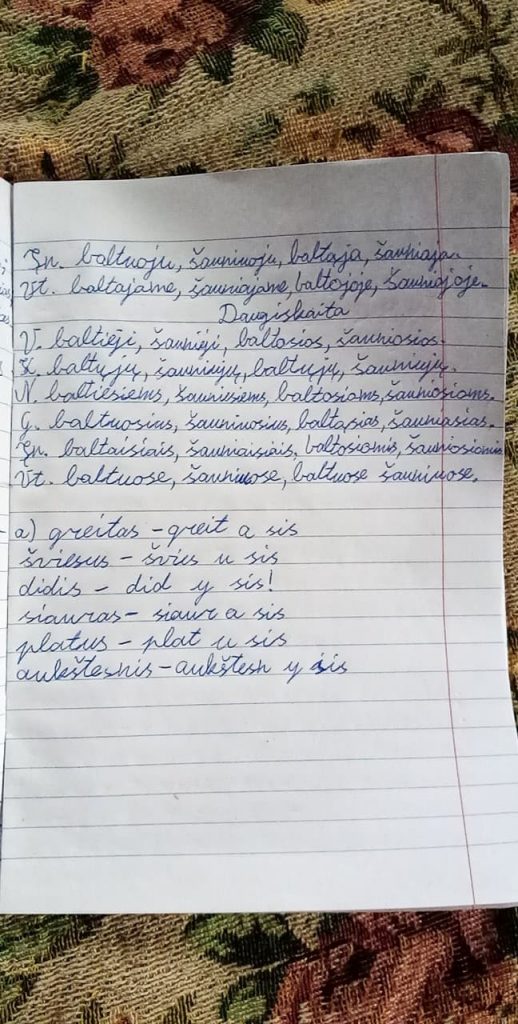 Įn. baltuoju, šauniuoju, baltąja, šauniąja.
Vt. baltajame, šauniajame, baltojoje, šauniojoje.
Daugiskaita
V. baltieji, šaunieji, baltosios, šauniosios.
K. baltųjų, šauniųjų, baltųjų, šauniųjų.
N. baltiesiems, šauniesiems, baltosioms, šauniosioms.
G. baltuosius, šauniuosius, baltąsias, šauniąsias.
Įn. baltaisiais, šauniaisiais, baltosiomis, šauniosiomis
Vt. baltuose, šauniuose, baltuose šauniuose.
a) greitas - greit a sis
šviesus - švies u sis
didis - did y sis!
siauras - siaur a sis
platus - plat u sis
aukštesnis - aukštesn y sis